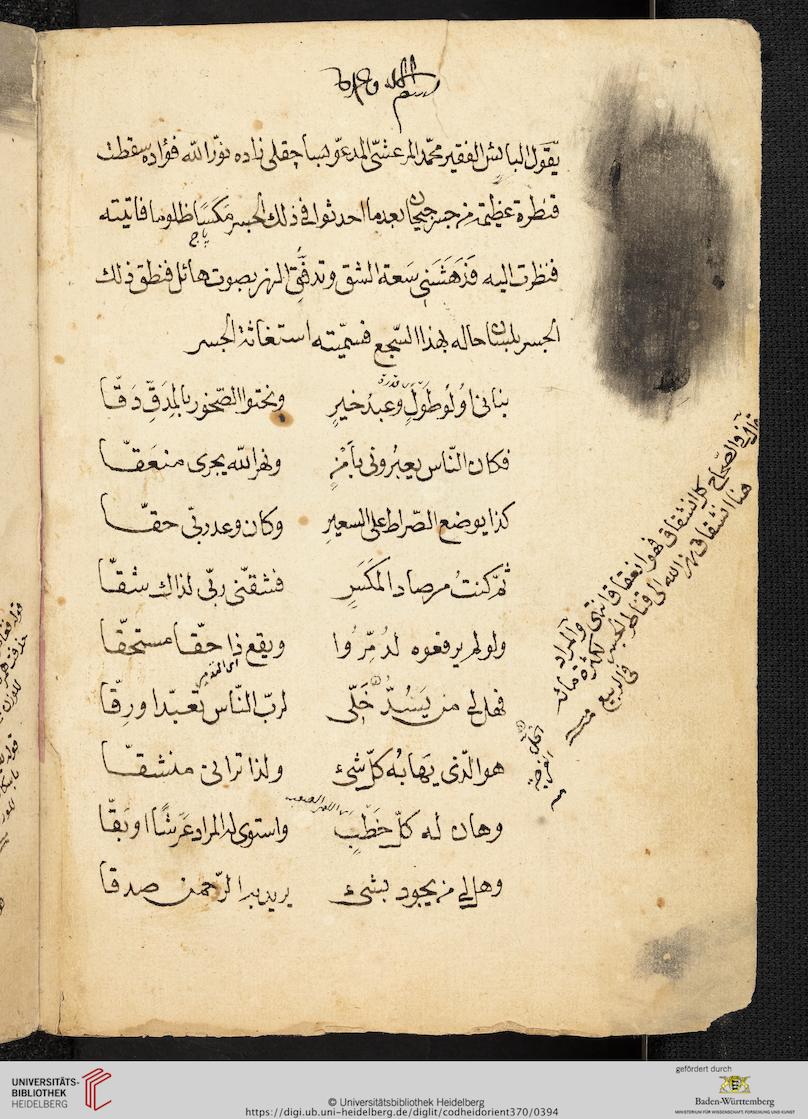 بسم الله وعونه
يقول البائس الفقير محمد المرعشي المدعو بساچقلى زاده نور الله فؤاده سقطت
قنطرة عظيمة من جسر جيحان بعدما احدثوا في ذلك الجسر مَكسًا ظلوما فاتيته
باج
فنظرت اليه فَدَهَشَنى سَعة الشق وتدفّق النهر بصوت هائل فنطق ذلك
الجسر بلسان حاله بهذا السّجع فسمّيته استغاثة الجسر
بنانى اُولُو طَوْلٍ وعبدُ خيرٍ ونحتوا الصّخور بالمِدَقِّ دَقّا
قدرة
فكان النّاس يعبُرونى بأمْنٍ ونهر الله يجرى منعَقّا
كذا يوضع الصّراط على السعير وكان وعد ربّى حقّا
ثمّ كنتُ مرصادا لمَكْسٍ فشقّنى ربّى لذاك شقّا
ولو لم يرفعوه لدُمِّرُوا ويقع ذا حقّا مستحقّا
فهل لى من يَسُدُّ خَلّى لربّ النّاس تعبّدا ورِقّا
هو الّذى يهابُه كلّ شئ ولذا ترانى منشقّا
وهان له كلّ خَطْبٍ واستوى لدا المراد عَرشًا او بَقّا
وهل لى من يجود بشئ يريد به الرّحمن صدقا
قال في الصّحاح كل انشقاق فهو انعقاق انتهى والمراد
هنا انشقاق نهر الله الى قناطر الجسر لكثرة مائه
في الربيع
منه
الخلل
الفرجة
منه
UNIVERSITÄTS-
BIBLIOTHEK
HEIDELBERG
© Universitätsbibliothek Heidelberg
https://digi.ub.uni-heidelberg.de/diglit/codheidorient370/0394
gefördert durch
Baden-Württemberg
MINISTERIUM FÜR WISSENSCHAFT, FORSCHUNG UND KUNST